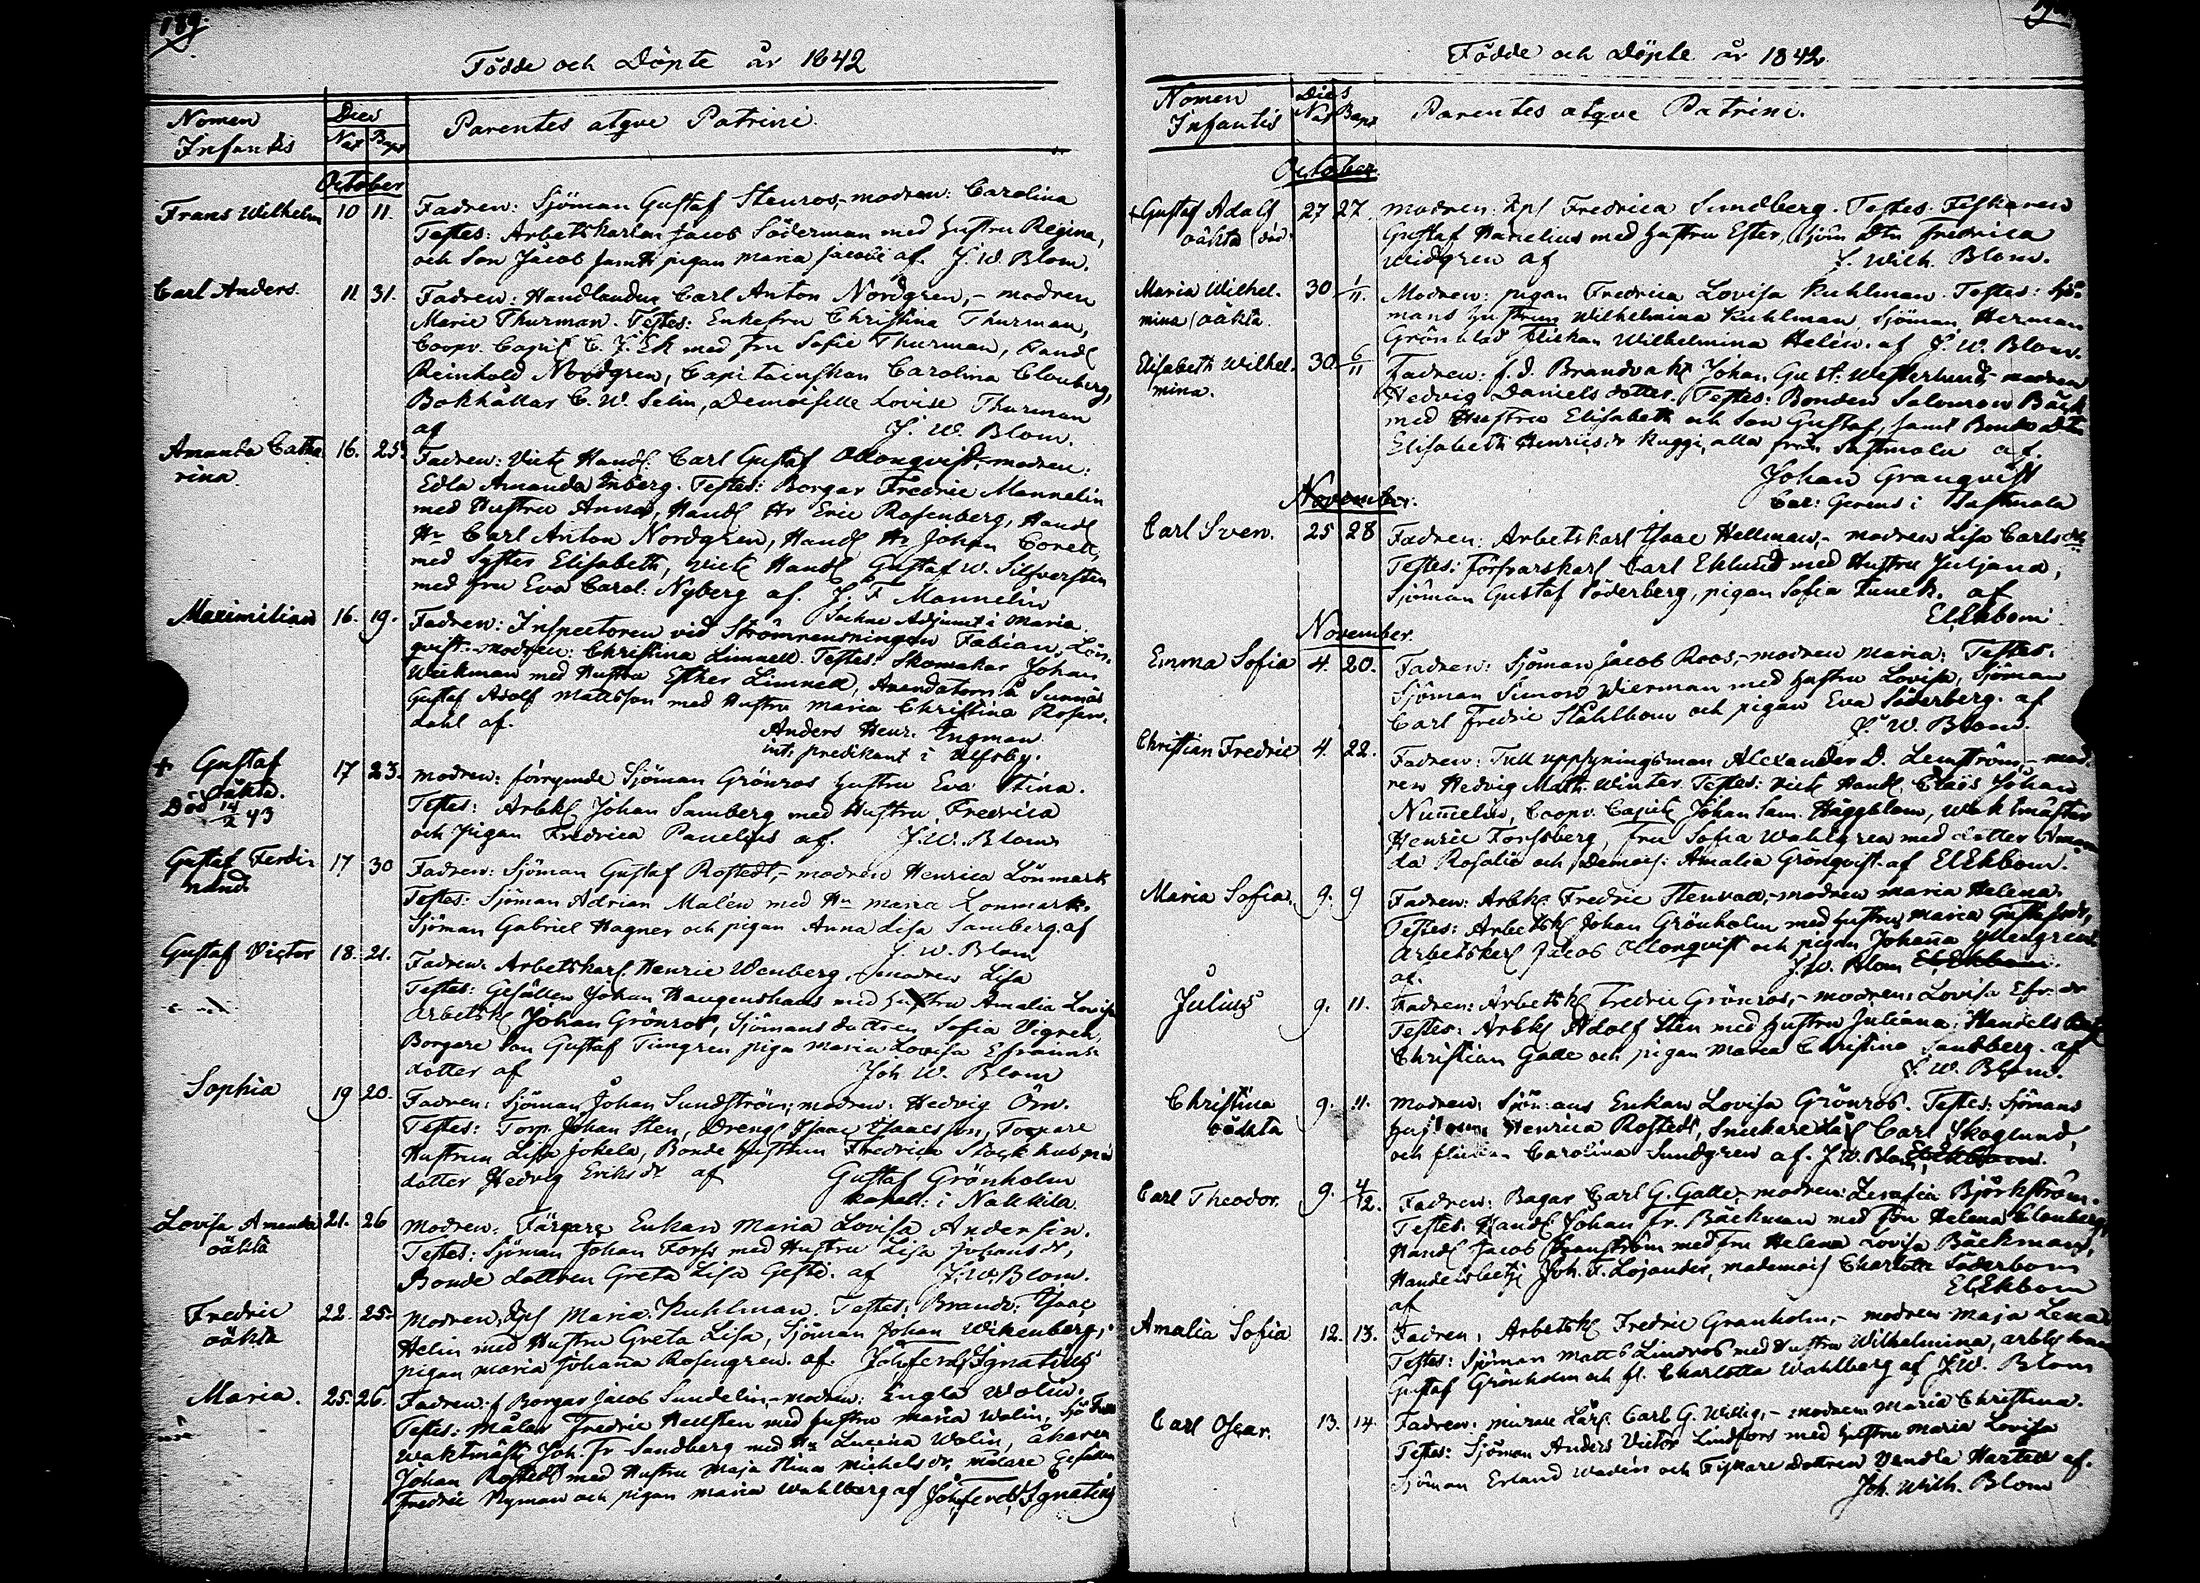 189
Födde och Döpte år 1842
Nomen Infantis
Dies
Nat Bapt
Parentes atqve Patrini.
October
Frans Wilhelm 10 11. Fadren: Sjöman Gustaf Stenros,- modren: Carolina
Testes: Arbetskarlen Jacob Söderman med hustru Regina,
och Son Jacob samt pigan Maria Jacobi af. J. W. Blom.
Carl Anders. 11 31. Fadren: Handlanden Carl Anton Nordgren,- modren
Marie Thurman. Testes: Enkefru Christina Thurman,
Coopv. Capit C. J. Ek med fru Sofie Thurman, Handl
Reinhold Nordgren, Capitainskan Carolina Clouberg,
Bokhållar C. W. Selin, Demoiselle Lovise Thurman
af J. W. Blom.
Amanda Catha 16. 25. Fadren: Vict Handl: Carl Gustaf Ollonqvist,- modren:
rina Edla Amanda Enberg. Testes: Borgar Fredric Mannelin
med Hustru Anna, Handl Hr Eric Rosenberg, Handl
Hr Carl Anton Nordgren, Handl Hr Johan Borell,
med Syster Elisabeth, Vict Handl Gustaf W. Silfversten
med fru Eva Carol: Nyberg af. J. F. Mannelin
Sockne Adjunct i Maria
Maximilian 16. 19. Fadren: Inspectoren vid Strömrensningen Fabian Lön-
qvist- modren: Christina Limnell. Testes: Skomakar Johan
Weckman med Hustru Esther Limnell, Arendatorn å Sunnäs
Gustaf Adolf Mattsson med Hustru Maria Christina Rosen-
dahl af. Anders Henr. Engman
int: predikant i Ulfsby.
+ Gustaf 17 23. modren: förrymde Sjöman Grönros hustru Eva Stina.
oäkta.
Död 14/2 43 Testes: Arbkl Johan Samberg med Hustru Fredrica
och pigan Fredrica Panelius af. J. W. Blom
Gustaf Ferdi- 17 30 Fadren: Sjöman Gustaf Rostedt,- modren Henrica Lönmark
nand. Testes: Sjöman Adrian Malén med Hu Maria Lonmark.
Sjöman Gabriel Hagner och pigan Anna Lisa Samberg. af
J. W. Blom
Gustaf Victor 18. 21. Fadren: Arbetskarl Henric Wenberg,- modren Lisa
Testes: Gesällen Johan Haugenshaus med hustru Amalia Lovisa
Arbetskl Johan Grönros, Sjömansdottren Sofia Vigrell,
Borgare Son Gustaf Timgren piga Maria Lovisa Efraims-
dotter af Joh W. Blom
Sophia 19 20. Fadren: Sjöman Johan Sundström; modren: Hedvig Örn.
Testes: Torp: Johan Sten, Drengl Isaac Isaacsson, Torpare
Hustrun Lisa Jokela, Bonde hustrun Fredrica Stackhus
dotter Hedvig Eriksdr af Gustaf Grönholm
kapell: i Nakkila
Lovisa Amanda 21. 26 modren: Färgare Enkan Maria Lovisa Andersin.
oäkta Testes: Sjöman Johan Forss med Hustru Lisa Johansdr,
Bonde dottren Greta Lisa Gestö. af J. W. Blom.
Fredric 22. 25. modren, Hpl Maria Kuhlman. Testes: Brandv: Isaac
oäkta Helin med Hustru Greta Lisa, Sjöman Johan Wikenberg,
pigan Maria Johana Rosengren. af. Joh. Ferd. Ignatius
Maria. 25. 26. Fadren: f Borgar Jacob Sundelin,- modren: Engla Wolin.
Testes: Målar Fredric Hellsten med hustru Maria Wolin, Sjö Tull
Waktmäst Joh. Fr. Sandberg med Hu Lucina Wolin, åkaren
Johan Rostedt med Hustru Maja Stina Michelsdr, målare Gesällen
Fredric Nyman och pigan Maria Wahlberg af Joh. Ferd. Ignatius
Födde och Döpte år 1842
Nomen Infantis
Dies
Nat Bapt
Parentes atqve Patrini.
October
+ Gustaf Adolf 27 27. modren: Hpl Fredrica Sundberg. Testes: Fiskaren
oäkta (död) Gustaf Hanelius med hustru Ester, Sjöm Dtn Fredrica
Widgren af J. Wilh. Blom.
Maria Wilhel- 30 1/11. Modren: pigan Fredrica Lovisa Kuhlman. Testes: Sjö-
mina (oäkta. mans hustrun Wilhelmina Kuhlman, Sjöman Herman
Grönblad flickan Wilhelmina Helin. af J. W. Blom.
Elisabeth Wilhel- 30 6/11 Fadren: f.d. Brandvakt Johan Gust: Westerlund,- modren
mina. Hedvig Daniels dotter. Testes: Bonden Salomon Bäck
med Hustru Elisabeth och Son Gustaf, samt Bonde Dtn
Elisabeth Henricsdr Kuggi, alla från Sastmola af.
Johan Granqvist
Cac: Gerens i Sastmola
November.
Carl Sven. 25 28 Fadren: Arbetskarl Isaac Hellman,- modren Lisa Carlsdr
Testes: Försvarskarl Carl Eklund med Hustru Juljana,
Sjöman Gustaf Söderberg, pigan Sofia Funck. af
El Ekbom
November.
Emma Sofia 4. 20. Fadren: Sjöman Jacob Roos,- modren Maria: Testes:
Sjöman Simon Wierman med hustru Lovisa, Sjöman
Carl Fredric Stählbom och pigan Eva Söderberg. af
J. W. Blom.
Christian Fredric 4. 22. Fadren: Tull uppsyningsman Alexander D. Lemström,- mod-
ren Hedvig Math. Winter. Testes: Vict Handl Claös Johan
Num̄elin, Coopv. Capit Johan Sam. Häggblom, Waktmäster
Henric Forssberg, fru Sofia Wahlgren med dotter Aman
da Rosalie och Demois: Amalia Grönqvist. af El Ekbom.
Maria Sofia. 9. 9 Fadren: Arbkl Fredric Stenvall,- modren Maria Helena.
Testes: Arbetskl Johan Grönholm med hustru Maria Gustafsdr,
Arbetskarl Jacob Ollonqvist och pigan Johanna
af. J. W. Blom El Ekbom.
Julius 9. 11. Fadren: Arbetskl Fredric Grönros,- modren: Lovisa Efr. dr
Testes: Arbkl Adolf Sten med hustru Juliana, Handels
Christian Galle och pigan Maria Christina Sandberg. af
J. W. Blom.
Christina 9. 11. modren: Sjömans Enkan Lovisa Grönros. Testes: Sjömans
oäkta hustrun Henrica Rostedt, Snickare Lärl Carl Skoglund,
och flickan Carolina Sundgren af. J. W. Blom, El Ekbom.
Carl Theodor. 9. 4/12. Fadren: Bagar Carl G. Galle,- modren: Serafia Björkström.
Testes: Handl: Johan Fr. Bäckman med fru Helena Clouberg,
Handl Jacob Granström med fru Helena Lovisa Bäckman,
Handelsbetj Joh. F. Lojander, mademois Charlotte Söderbom
af El Ekbom
Amalia Sofia 12. 13. Fadren, Arbetskl Fredric Granholm,- modren Maja Lena
Testes: Sjöman Matts Lindros med Hustru Wilhelmina,
Gustaf Grönholm och fl. Charlotta Wahlberg af J. W. Blom
Carl Oscar. 13. 14. Fadren: murare Lärl: Carl G. Willig,- modren Maria Christina.
Testes: Sjöman Anders Victor Lindfors med hustru Maria Lovisa
Sjöman Erland Wadén och Fiskare Dottren Vendla Hartell af.
Joh. Wilh. Blom